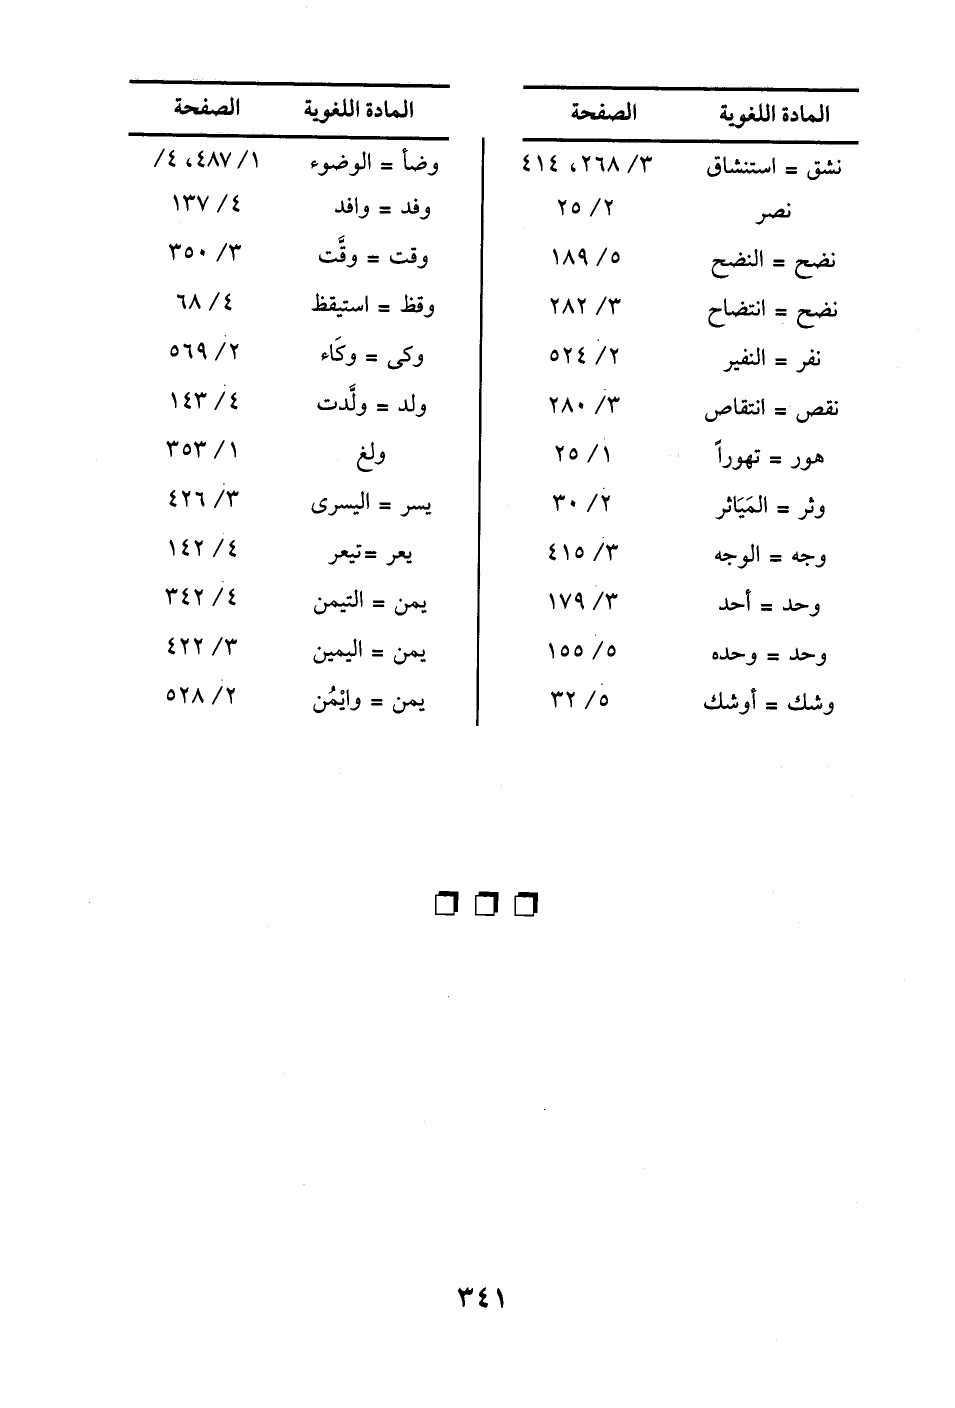 المادة اللغوية الصفحة
نشق = استنشاق ٣/ ٢٦٨، ٤١٤
نصر ٢/ ٢٥
نضح = النضح ٥/ ١٨٩
نضح = انتضاح ٣/ ٢٨٢
نفر = النفير ٢/ ٥٢٤
نقص = انتقاص ٣/ ٢٨٠
هور = تهوراً ١/ ٢٥
وثر = المَيَاثر ٢/ ٣٠
وجه = الوجه ٣/ ٤١٥
وحد = أحد ٣/ ١٧٩
وحد = وحده ٥/ ١٥٥
وشك = أوشك ٥/ ٣٢
المادة اللغوية الصفحة
وضأ = الوضوء ١/ ٤٨٧، ٤/
وفد = وافد ٤/ ١٣٧
وقت = وقَّت ٣/ ٣٥٠
وقظ = استيقظ ٤/ ٦٨
وكى = وكَاء ٢/ ٥٦٩
ولد = ولَّدت ٤/ ١٤٣
ولغ ١/ ٣٥٣
يسر = اليسرى ٣/ ٤٢٦
يعر =تيعر ٤/ ١٤٢
يمن = التيمن ٤/ ٣٤٢
يمن = اليمين ٣/ ٤٢٢
يمن = وايْمُن ٢/ ٥٢٨
٣٤١